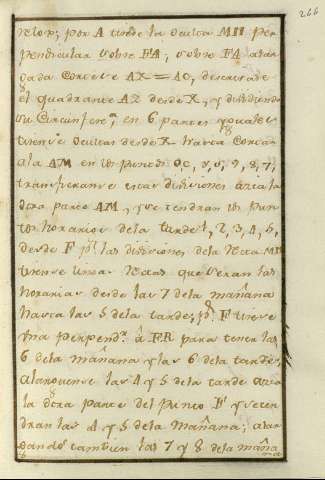 266
relox; por A tirese la oculta MII per
pendicular sobre FA, sobre FA alar
gada cortese AX = AC, descrivase
el quadrante AZ desde X, y dividiendo
su circunferª en 6 partes yguales
tirense ocultas desde X hasta cortar
a la AM en los puntos 9, 8, 7,
transfieranse estas divisiones azia la
otra parte AM, y se tendran los pun
tos horarios de la tarde 1, 2, 3, 4, 5,
desde F pr las divisiones de la Recta MII
tirense unas Rectas que seran las
horarias desde las 7 de la mañana
hasta las 5 de la tarde; pr F tirese
una perpendr â FR para tener las
6 de la mañana y las 6 de la tarde,
alarguense las 4 y 5 de la tarde azia
la otra parte del punto F y se ten
dran las 4 y 5 de la mañana; alar
gando tambien las 7 y 8 de la maña
na